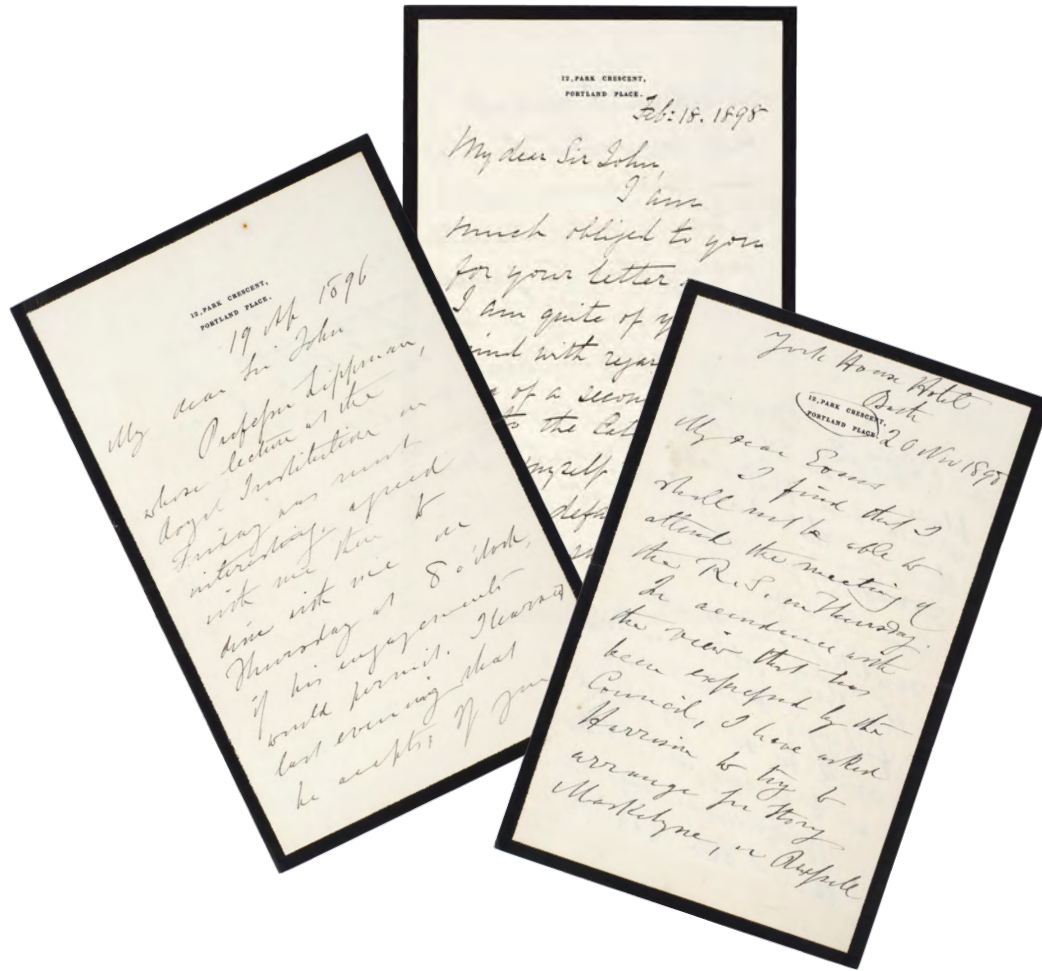 12, PARK CRESCENT,
PORTLAND PLACE.
19 Ap 1896
My dear Sir John
Professor Lippman,
whose lecture at the
Royal Institution on
Friday was most
interesting, agreed
with me then to
dine with me on
Thursday at 8 o'clock,
if his engagements
would permit. I learned
last evening that
he accepts. If you
12, PARK CRESCENT,
PORTLAND PLACE.
Feb: 18. 1898
My dear Sir John,
I am
much obliged to you
for your letter.
I am quite of
with
of a
to the
myself
York House Hotel
Bath
12, PARK CRESCENT,
PORTLAND PLACE.
20 Nov 1895
My dear Evans
I find that I
shall not be able to
attend the meeting of
the R.S. on Thursday.
In accordance with
the view that has
been expressed by the
Council, I have asked
Harrison to try to
arrange for Story
Maskelyne, or